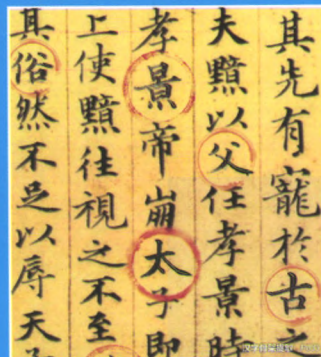 其先有寵於古
夫黯以父任孝景時
孝景帝崩太子即
上使黯往視之不至
其俗然不足以辱天